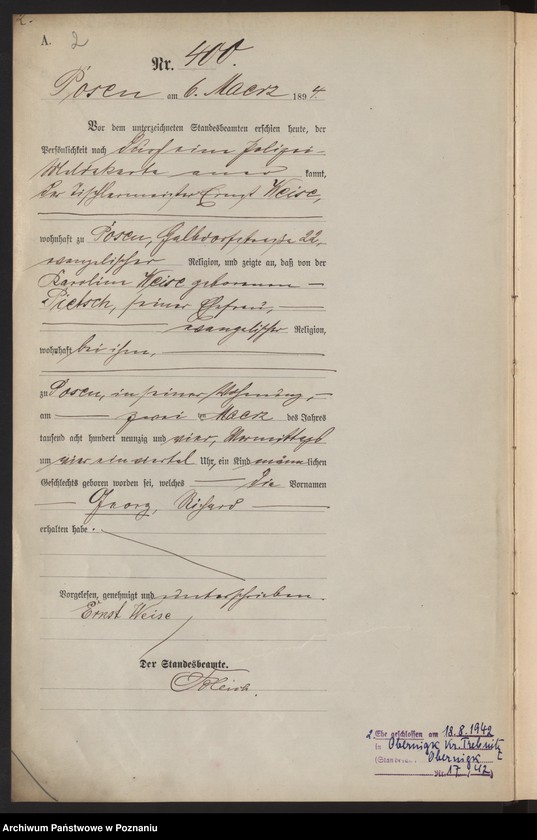 A. 2
Nr. 400.
Posen am 6. Maerz 1894.
Vor dem unterzeichneten Standesbeamten erschien heute, der
Persönlichkeit nach durch eine Polizei-
Meldekarte aner kannt,
der Tischlermeister Ernst Weise,
wohnhaft zu Posen, Halbdorfstraße 22,
evangelischer Religion, und zeigte an, daß von der
Karoline Weise geborenen
Pietsch, seiner Ehefrau,
evangelischer Religion,
wohnhaft bei ihm,
zu Posen, in seiner Wohnung,
am zwei ten Maerz des Jahres
tausend acht hundert neunzig und vier, Vormittags
um vier ein viertel Uhr, ein Kind männlichen
Geschlechts geboren worden sei, welches die Vornamen
Georg, Richard
erhalten habe.
Vorgelesen, genehmigt und unterschrieben.
Ernst Weise
Der Standesbeamte.
2. Ehe geschlossen am 18.8.1942
in Obernigk Kr. Trebnitz
Obernigk
Nr. 17 / 42)
Archiwum Państwowe w Poznaniu